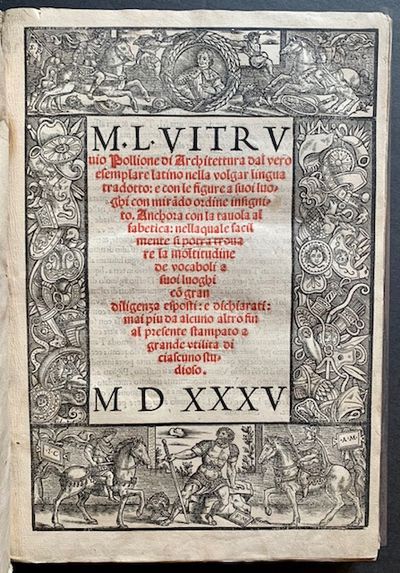 M. L. VITRV
uio Pollione di Architettura dal vero
esemplare latino nella volgar lingua
tradotto: e con le figure a suoi luo⸗
ghi con mirãdo ordine insigni⸗
to. Anchora con la tauola al
fabetica: nella quale facil
mente si potra troua
re la moltitudine
de vocaboli a
suoi luoghi
cõ gran
diligenza esposti: e dichiarati:
mai piu da alcuno altro fin
al presente stampato a
grande vtilita di
ciascuno stu⸗
dioso.
M D XXXV
S·C
·A·M·